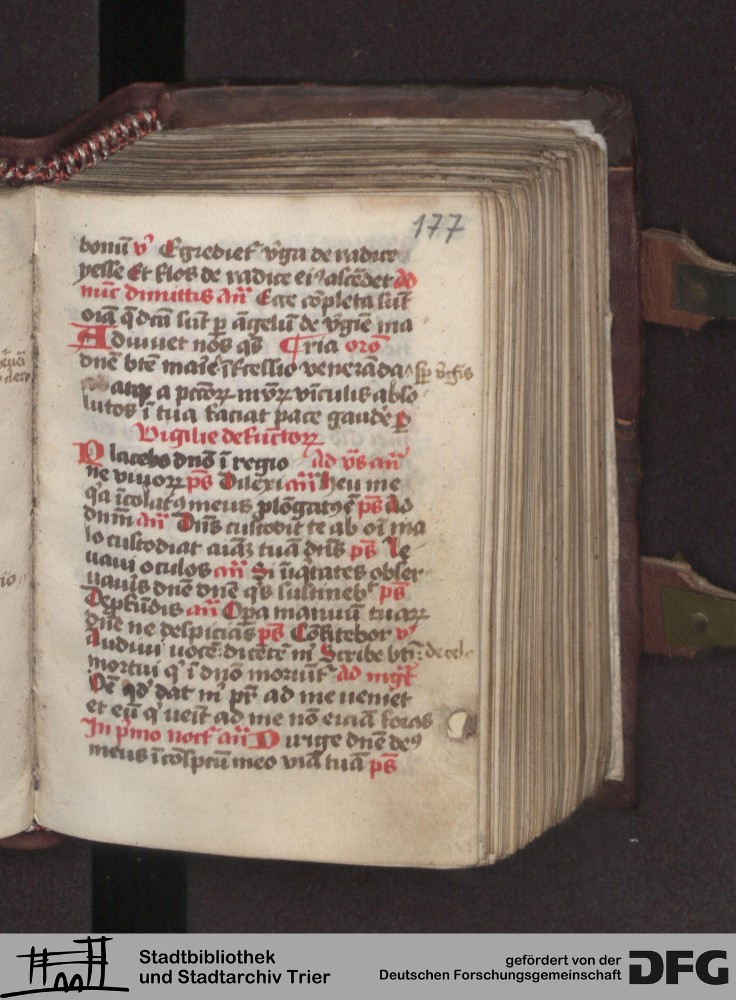 177
bonū v̓ Egrediet̓ v̓ga de radice
yesse Et flos de radice ei᷒ ascēdet ad
nūc dimittis an̄ Ecce cōpleta sūt
oīa q̄ dcā sūt ꝑ āgelū de v̓gīe ma
Adiuuet nos q̄s ria orō
dnē btē maīe īt̓cessio venerāda
sp̄ v̓gīs
atꝗ a pctōꝝ nr̄oꝝ vīculis abso
lutos ī tua faciat pace gaude ꝑ
Vigilie defūctoꝝ
Placebo dnō ī regio ad v̄s an̄
ne viuoꝝ ps̄ Dilexi an̄ heu me
q̓a īcolat᷒ meus plōgat᷒ ē ps̄ Ad
dnm̄ an̄ Dn̄s custodit te ab oī ma
lo custodiat aīaz tuā dn̄s ps̄ Le
uaui oculos an̄ Si īiq̓tates obser
uauīs dnē dnē q̓s sustineb̓ ps̄
De ꝓfūdis an̄ Oꝑa manuū tuaꝝ
dnē ne despicias ps̄ Cōfitebor v̓
Audiui uocē dicētē m̓ Scribe bt̄i
de celo
mortui q̓ ī dnō moriūt̓ ad mḡt
Oē qd̓ dat m̓ pr̄ ad me ueniet
et eū q̓ ueīt ad me nō eiciā foras
In p̓mo noct̓ an̄ Dirige dnē de᷒
meus ī cōspctū meo viā tuā ps̄
Stadtbibliothek
und Stadtarchiv Trier
gefördert von der
Deutschen Forschungsgemeinschaft
DFG